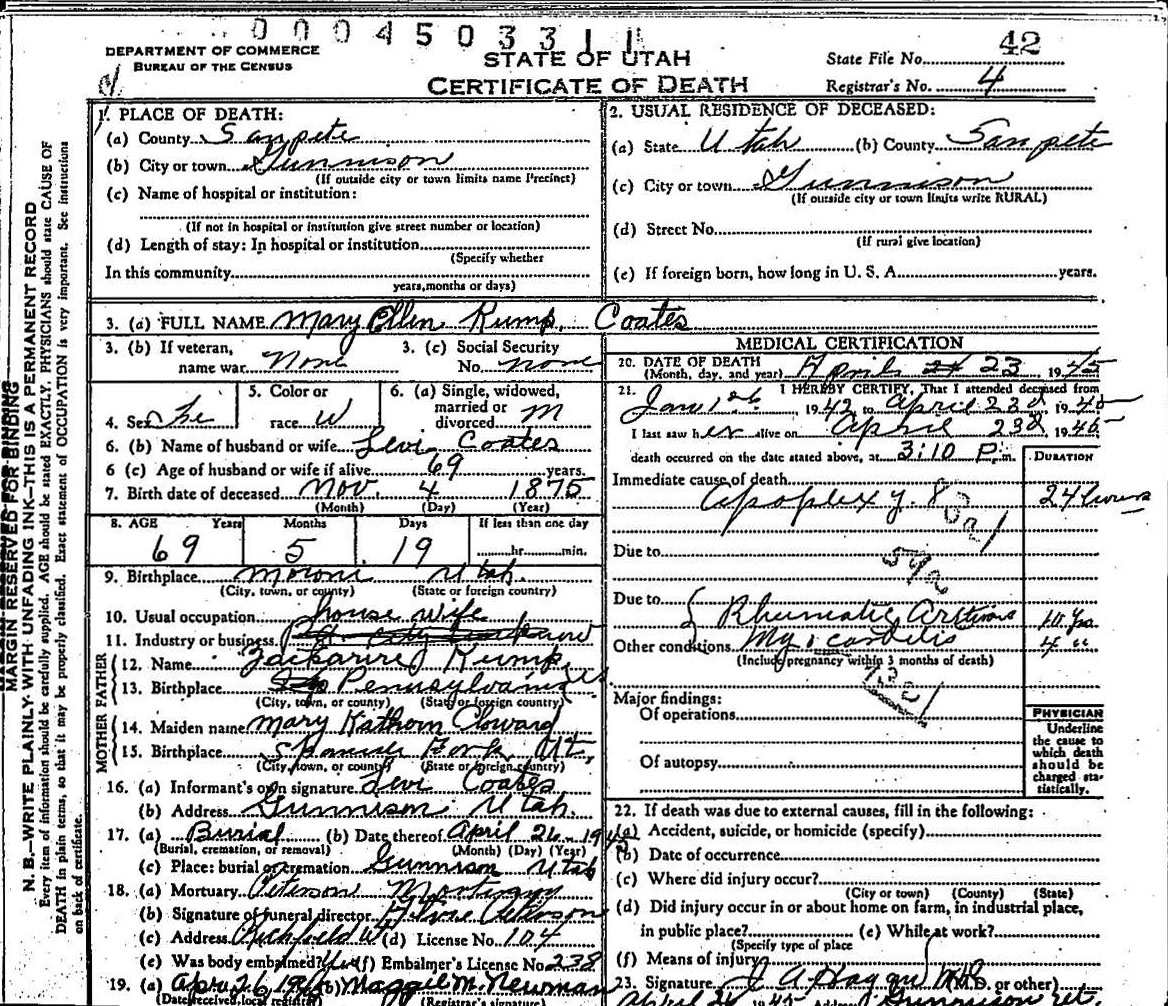 0 0 0 4 5 0 3 3 1 1
DEPARTMENT OF COMMERCE
BUREAU OF THE CENSUS
STATE OF UTAH
CERTIFICATE OF DEATH
State File No. 42
Registrar's No. 4
MARGIN RESERVED FOR BINDING
N. B.—WRITE PLAINLY WITH UNFADING INK—THIS IS A PERMANENT RECORD
Every item of information should be carefully supplied. AGE should be stated EXACTLY. PHYSICIANS should state CAUSE OF
DEATH in plain terms, so that it may be properly classified. Exact statement of OCCUPATION is very important. See instructions
on back of certificate.
1. PLACE OF DEATH:
(a) County Sanpete
(b) City or town Gunnison
(If outside city or town limits name Precinct)
(c) Name of hospital or institution:
(If not in hospital or institution give street number or location)
(d) Length of stay: In hospital or institution
(Specify whether
In this community
years, months or days)
2. USUAL RESIDENCE OF DECEASED:
(a) State Utah (b) County Sanpete
(c) City or town Gunnison
(If outside city or town limits write RURAL)
(d) Street No.
(If rural give location)
(e) If foreign born, how long in U. S. A. years.
3. (a) FULL NAME Mary Ellen Kump Coates
3. (b) If veteran, 3. (c) Social Security
name war None No. none
4. Sex she 5. Color or race W 6. (a) Single, widowed, married or divorced M
6. (b) Name of husband or wife Levi Coates
6 (c) Age of husband or wife if alive 69 years.
7. Birth date of deceased Nov. 4 1875
(Month) (Day) (Year)
8. AGE Years Months Days If less than one day
69 5 19 hr. min.
9. Birthplace Moroni Utah.
(City, town, or county) (State or foreign country)
10. Usual occupation house wife
11. Industry or business
FATHER
12. Name Zackarire Kump
13. Birthplace Pennsylvania
(City, town, or county) (State or foreign country)
MOTHER
14. Maiden name Mary Kathorn Cloward
15. Birthplace Spanish Fork Ut.
(City, town, or county) (State or foreign country)
16. (a) Informant's own signature Levi Coates
(b) Address Gunnison Utah.
17. (a) Burial (b) Date thereof April 26-1945
(Burial, cremation, or removal) (Month) (Day) (Year)
(c) Place: burial or cremation Gunnison Utah
18. (a) Mortuary Peterson Mortuary
(b) Signature of funeral director Peterson
(c) Address Richfield Ut (d) License No. 104
(e) Was body embalmed? Yes (f) Embalmer's License No. 238
19. (a) Apr 26, 1945 (b) Maggie M. Newman
(Date received, local registrar) (Registrar's signature)
MEDICAL CERTIFICATION
20. DATE OF DEATH
(Month, day, and year) April 23, 1945
21. I HEREBY CERTIFY, That I attended deceased from
Jan 1st 1942 to April 23d 1945
I last saw her alive on April 23d, 1945
death occurred on the date stated above, at 3:10 P. m.
DURATION
Immediate cause of death
Apoplexy. 24 hours
Due to
Due to Rhumatic 10 yrs
Other conditions Myocarditis 4 "
(Include pregnancy within 3 months of death)
Major findings:
Of operations
Of autopsy
PHYSICIAN
Underline
the cause to
which death
should be
charged sta-
tistically.
22. If death was due to external causes, fill in the following:
(a) Accident, suicide, or homicide (specify)
(b) Date of occurrence
(c) Where did injury occur?
(City or town) (County) (State)
(d) Did injury occur in or about home on farm, in industrial place,
in public place? (e) While at work?
(Specify type of place
(f) Means of injury
23. Signature J A Hagan M.D. or other)
April 24 1945 Address Gunnison